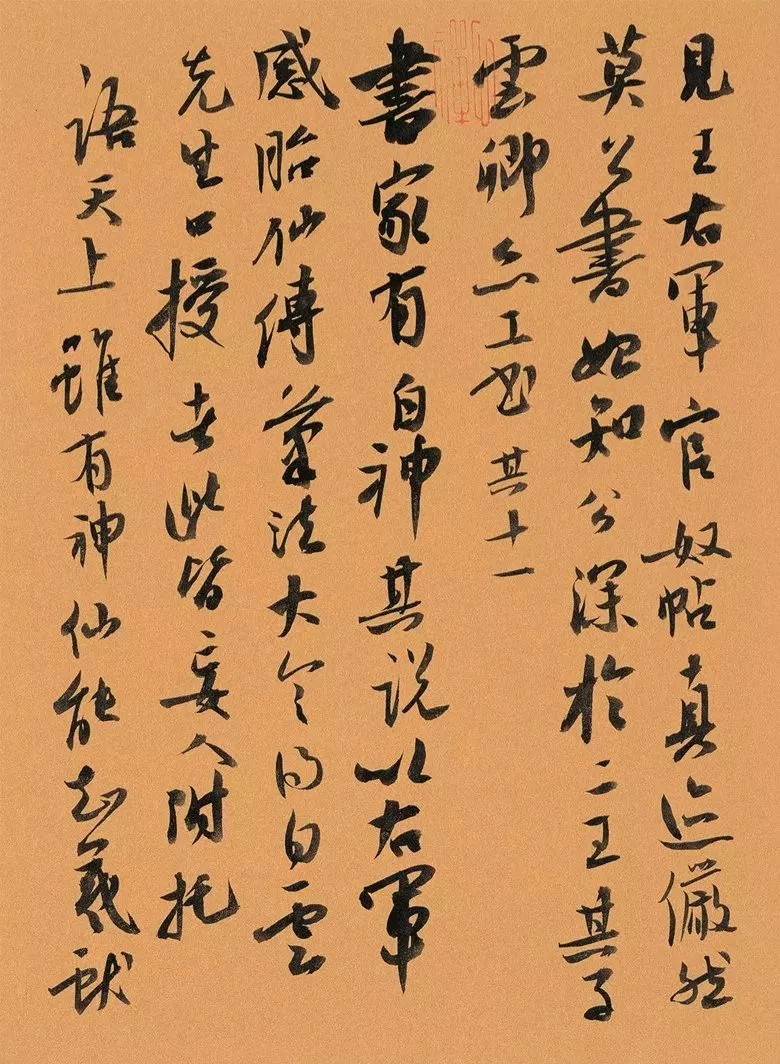 見王右軍官奴帖真迹儼然
莫公書始知公深於二王其子
雲卿亦工書其十一
書家有自神其説以右軍
感胎仙傳筆法大令得白雲
先生口授者此皆妄人附托
語天上雖有神仙能知羲獻